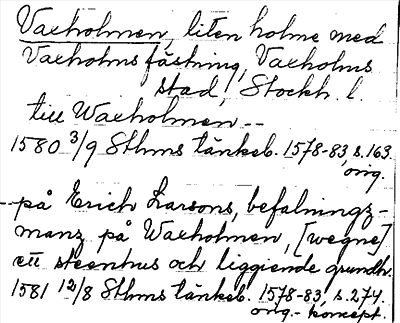 Vaxholmen, liten holme med
Vaxholms fästning, Vaxholms
stad, Stockh. l.
till Waxholmen --
1580 3/9 Sthms tänkeb. 1578-83, s. 163.
orig.
- på Erich Larsons, befalningz-
manz på Waxholmen, [wegne]
ett steenhus och liggiende grundh.
1581 12/8 Sthms tänkeb. 1578-83, s. 274.
orig.- koncept.